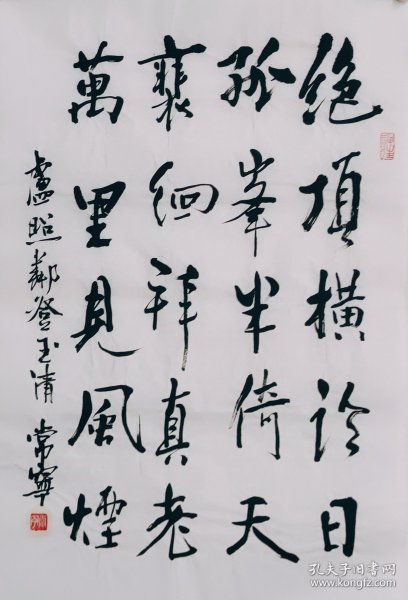 絶頂橫臨日
孤峯半倚天
裴徊拜真老
萬里見風煙
盧照鄰登玉清 常寧
孔夫子旧书网
www.kongfz.com